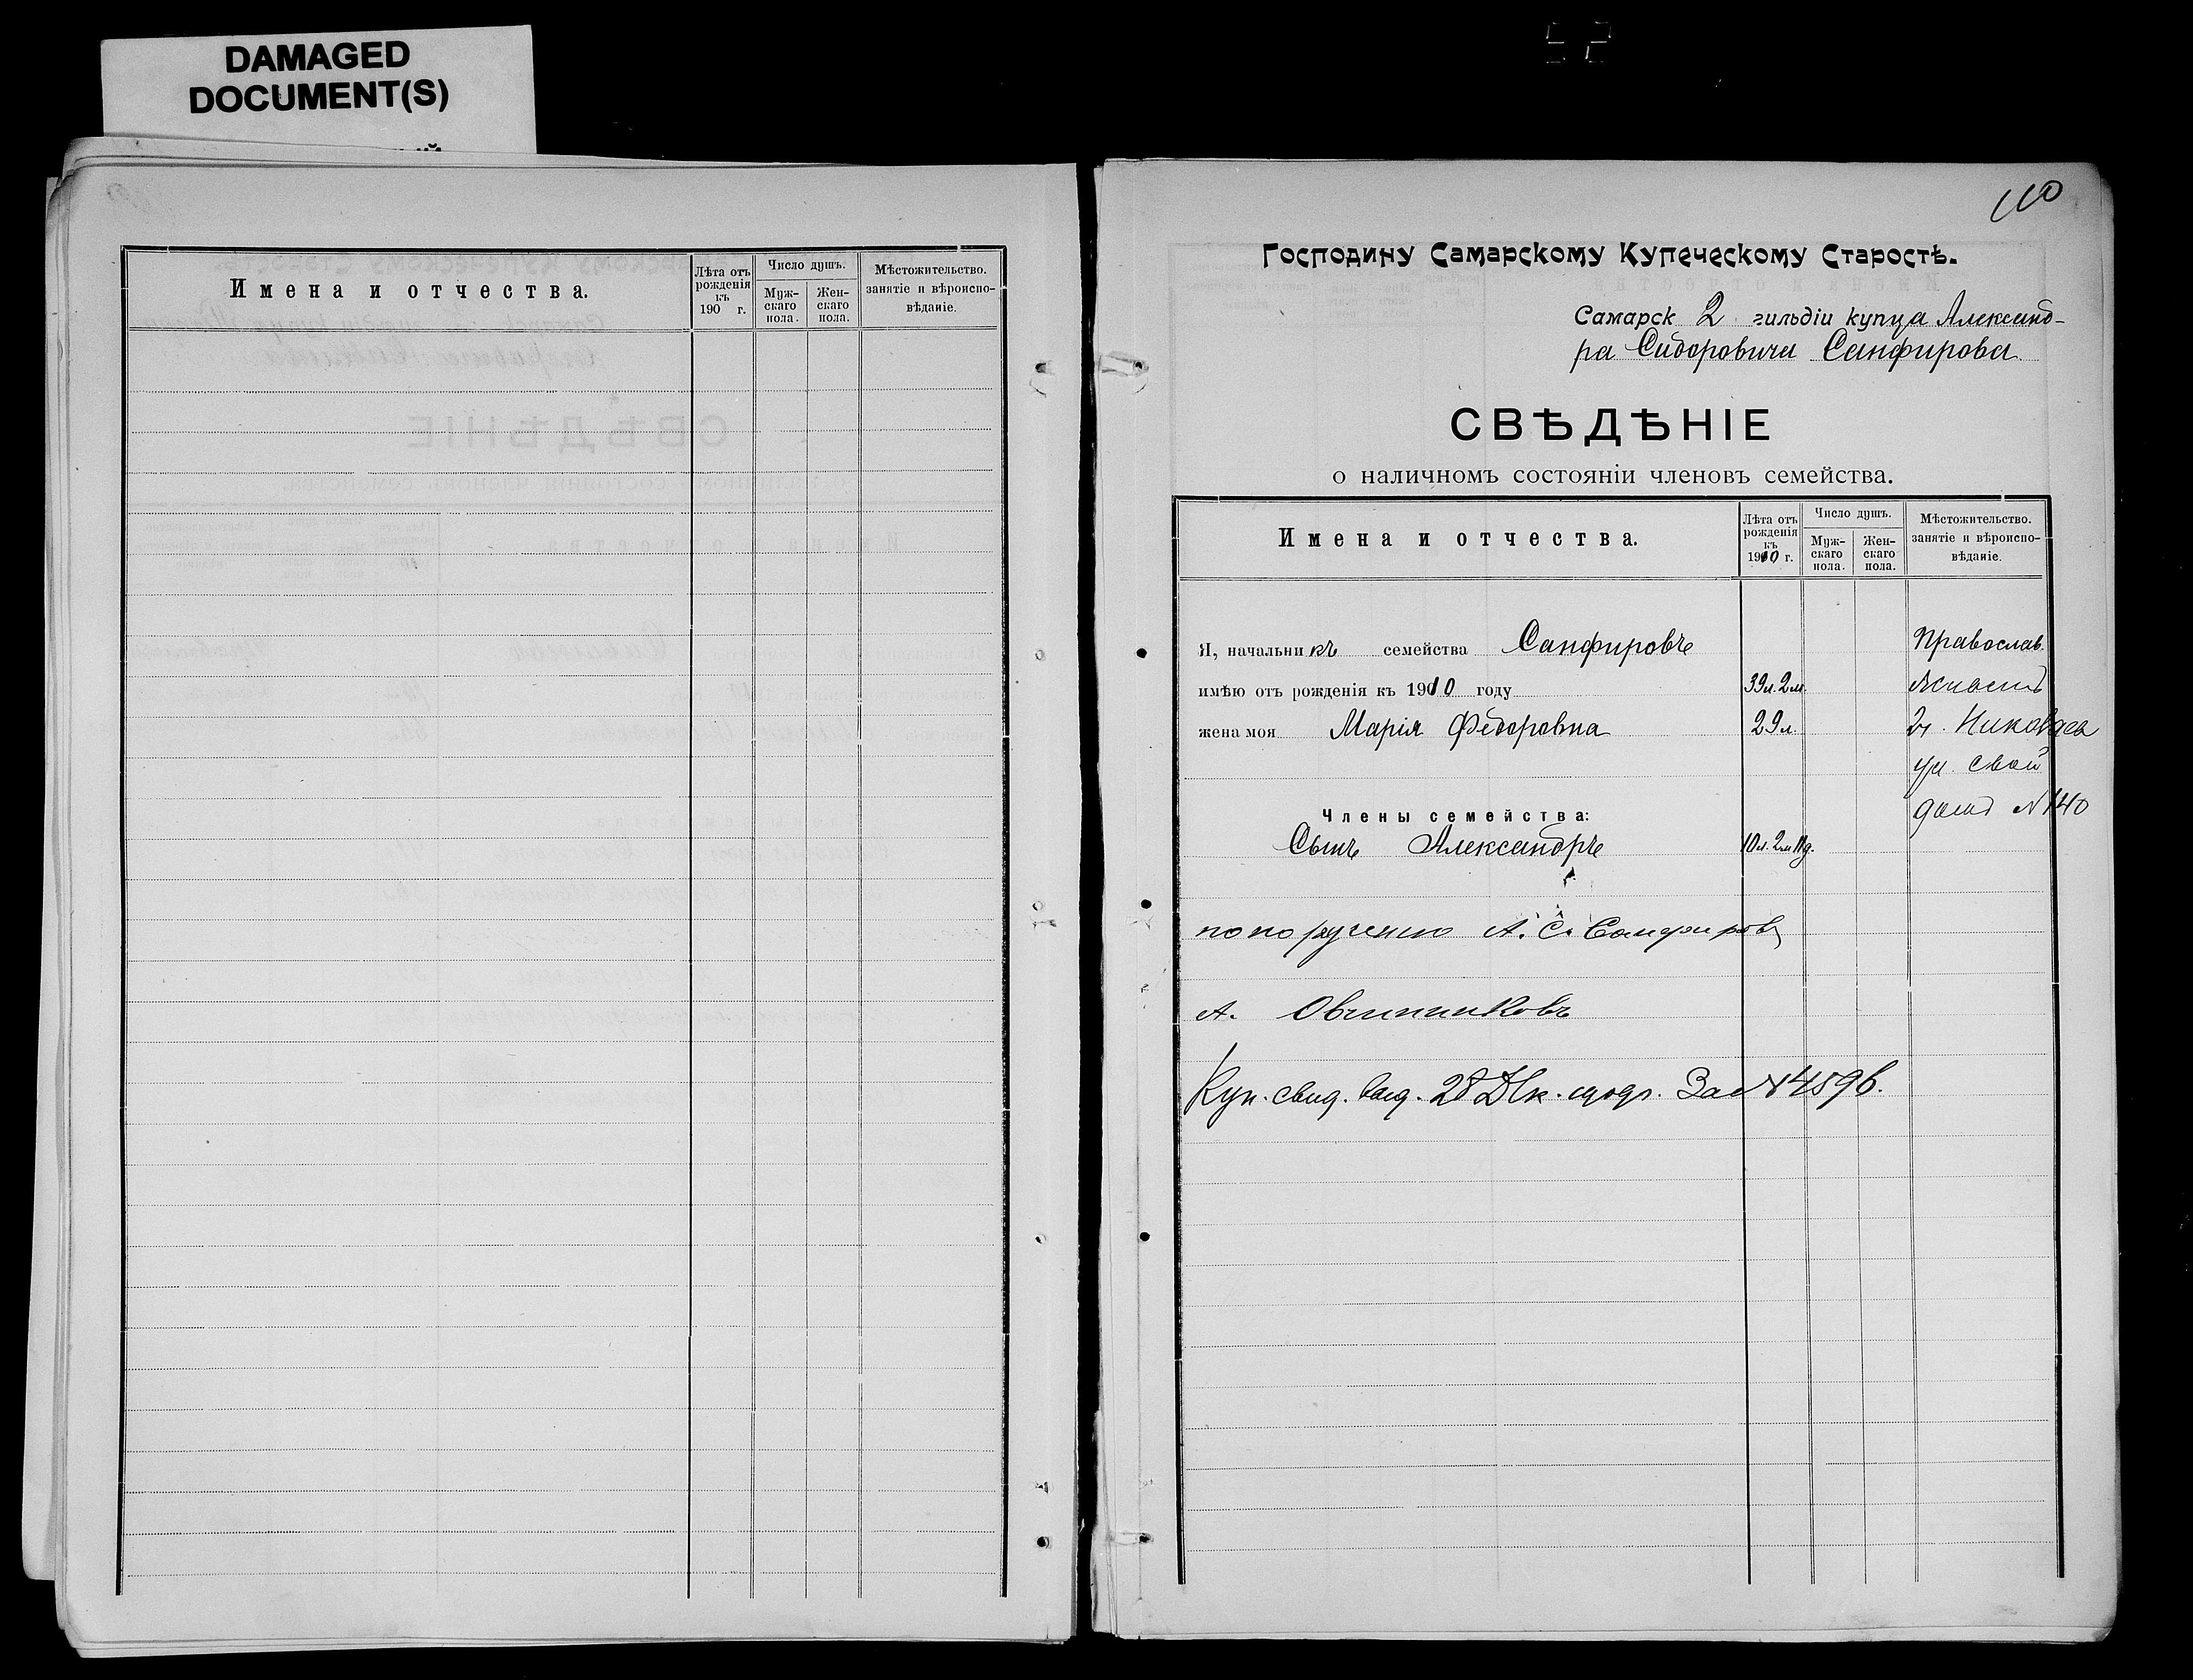 DAMAGED
DOCUMENT(S)
Имена и отчества.
Лѣта отъ рожденія къ 190 г.
Число душъ.
Муж-скаго пола.
Жен-скаго пола.
Мѣстожительство. занятіе и вѣроиспо-вѣданіе.
110
Господину Самарскому Купеческому Старостѣ.
Самарск 2 гильдіи купца Александ-
ра Сидоровича Санфирова
СВѢДѢНІЕ
о наличномъ состояніи членовъ семейства.
Имена и отчества.
Лѣта отъ рожденія къ 1910 г.
Число душъ.
Муж-скаго пола.
Жен-скаго пола.
Мѣстожительство. занятіе и вѣроиспо-вѣданіе.
Я, начальникъ семейства Санфировъ Православ.
имѣю отъ рожденія къ 1910 году 39л. 2м.
жена моя Марія Федоровна 29л.
ул. свой
Члены семейства:
домъ №140
Сынъ Александръ 10л. 2м 11д.
по порученію А. С. Санфиров
А. Овчинниковъ
Куп. свид. выд. 28 Дек. 1909г. За №4596.